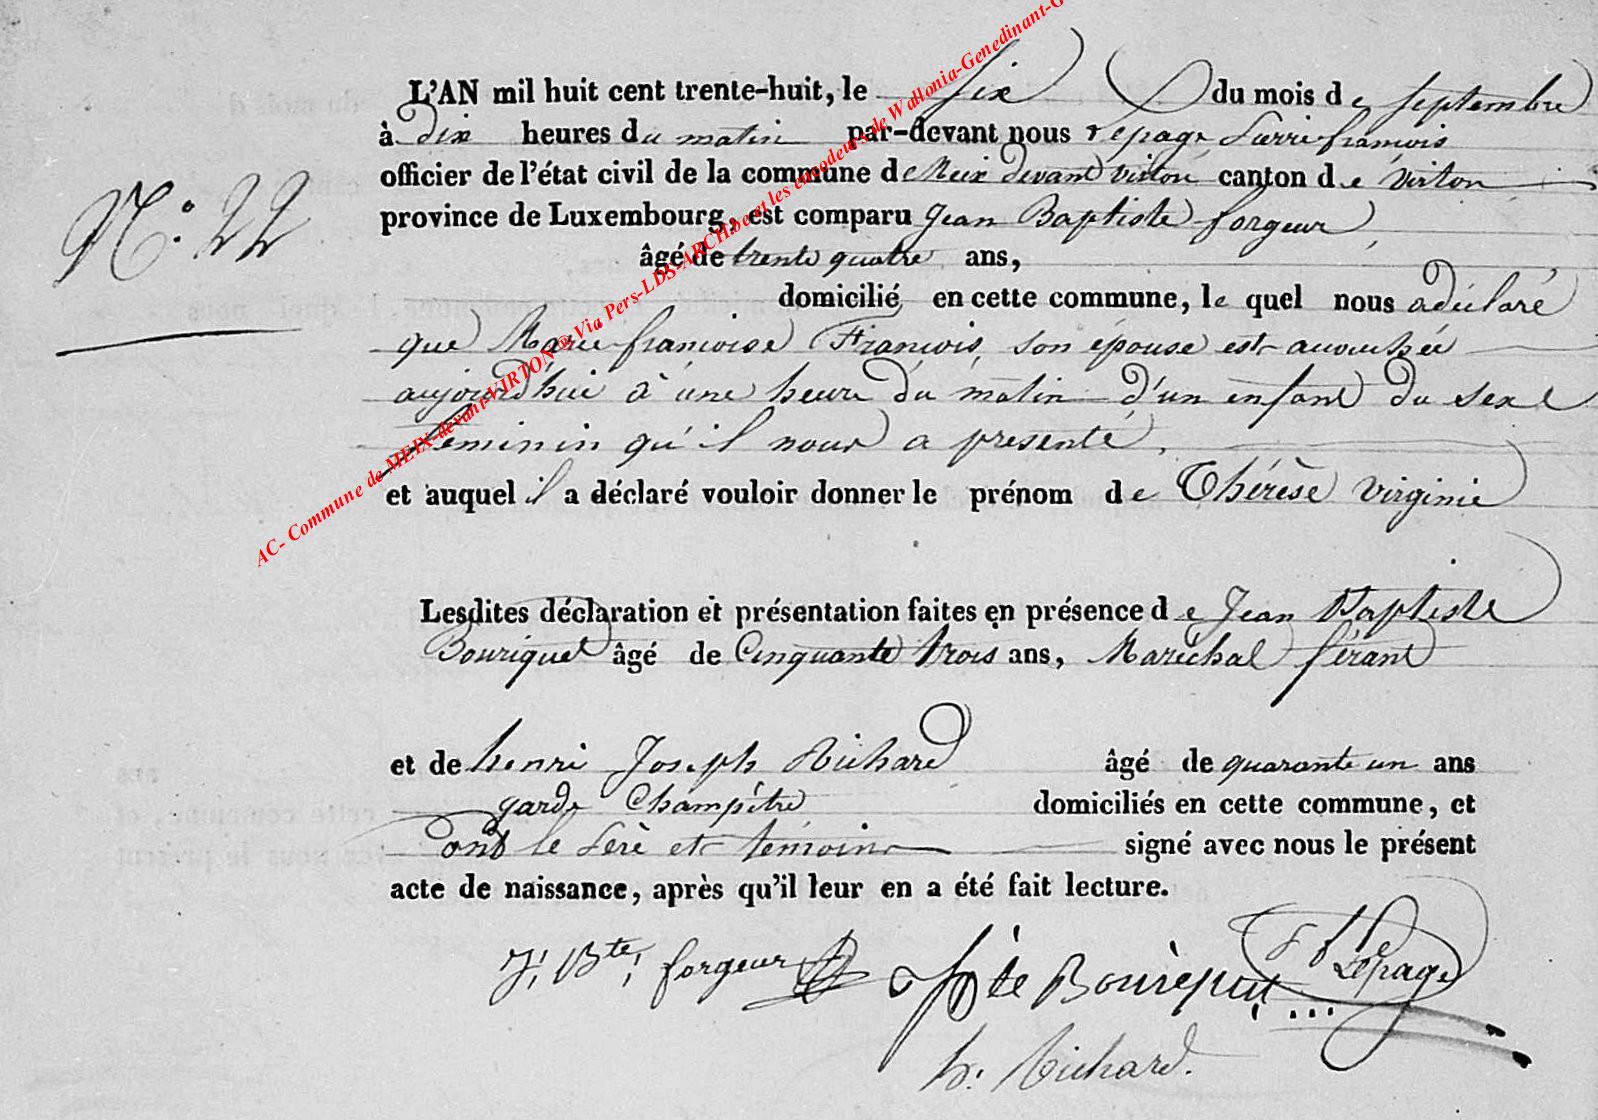 L'AN mil huit cent trente-huit, le six du mois de septembre
à dix heures du matin par-devant nous Lepage Pierre françois
officier de l'état civil de la commune de Meix devant virton canton de virton
N.o 22
province de Luxembourg, est comparu Jean Baptiste forgeur
âgé de trente quatre ans,
domicilié en cette commune, le quel nous a déclaré
que Marie françoise François son épouse est accouchée
aujourd'hui à une heure du matin d'un enfant du sexe
feminin qu'il nous a presenté.
et auquel il a déclaré vouloir donner le prénom de Thérèse virginie
Lesdites déclaration et présentation faites en présence de Jean Baptiste
Bouriquet âgé de Cinquante trois ans, Maréchal férant
et de henri Joseph Richard âgé de quarante un ans
garde Champêtre domiciliés en cette commune, et
ont le Père et témoins signé avec nous le présent
acte de naissance, après qu'il leur en a été fait lecture.
J. Bte. forgeur Bte Bouriquet P f Lepage
h. Richard.
AC- Commune de MEIX-devant-VIRTON @ Via Pers-LDS-ARCH.be et les encodeurs de Wallonia-Genedinant-G